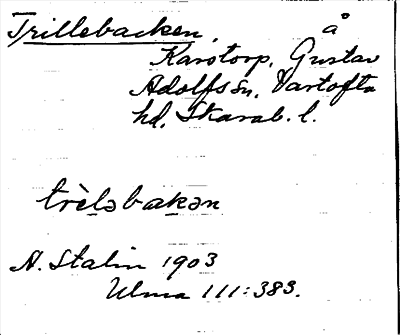 Trillebacken, å
Karstorp, Gustav
Adolfs sn, Vartofta
hd, Skarab. l.
trèləbakən
N. Stalin 1903
Ulma 111:383.